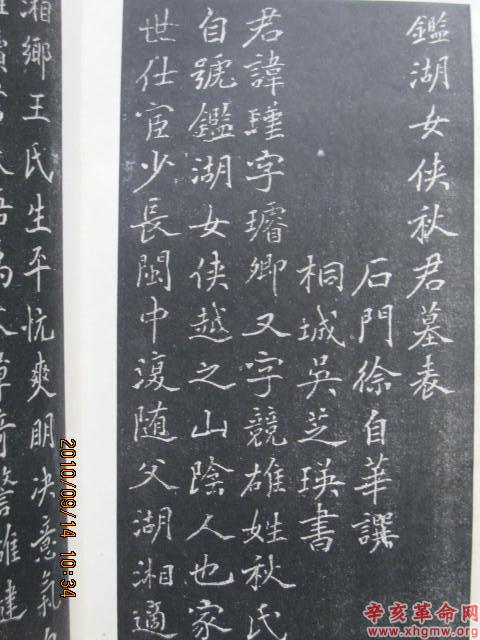 鑑湖女俠秋君墓表
石門徐自華譔
桐城吳芝瑛書
君諱瑾字璿卿又字競雄姓秋氏
自號鑑湖女俠越之山陰人也家
世仕宦少長閩中復随父湖湘適
湘鄉王氏生平伉爽明决意氣
2010/09/14 10:34
辛亥革命网
www.xhgmw.org